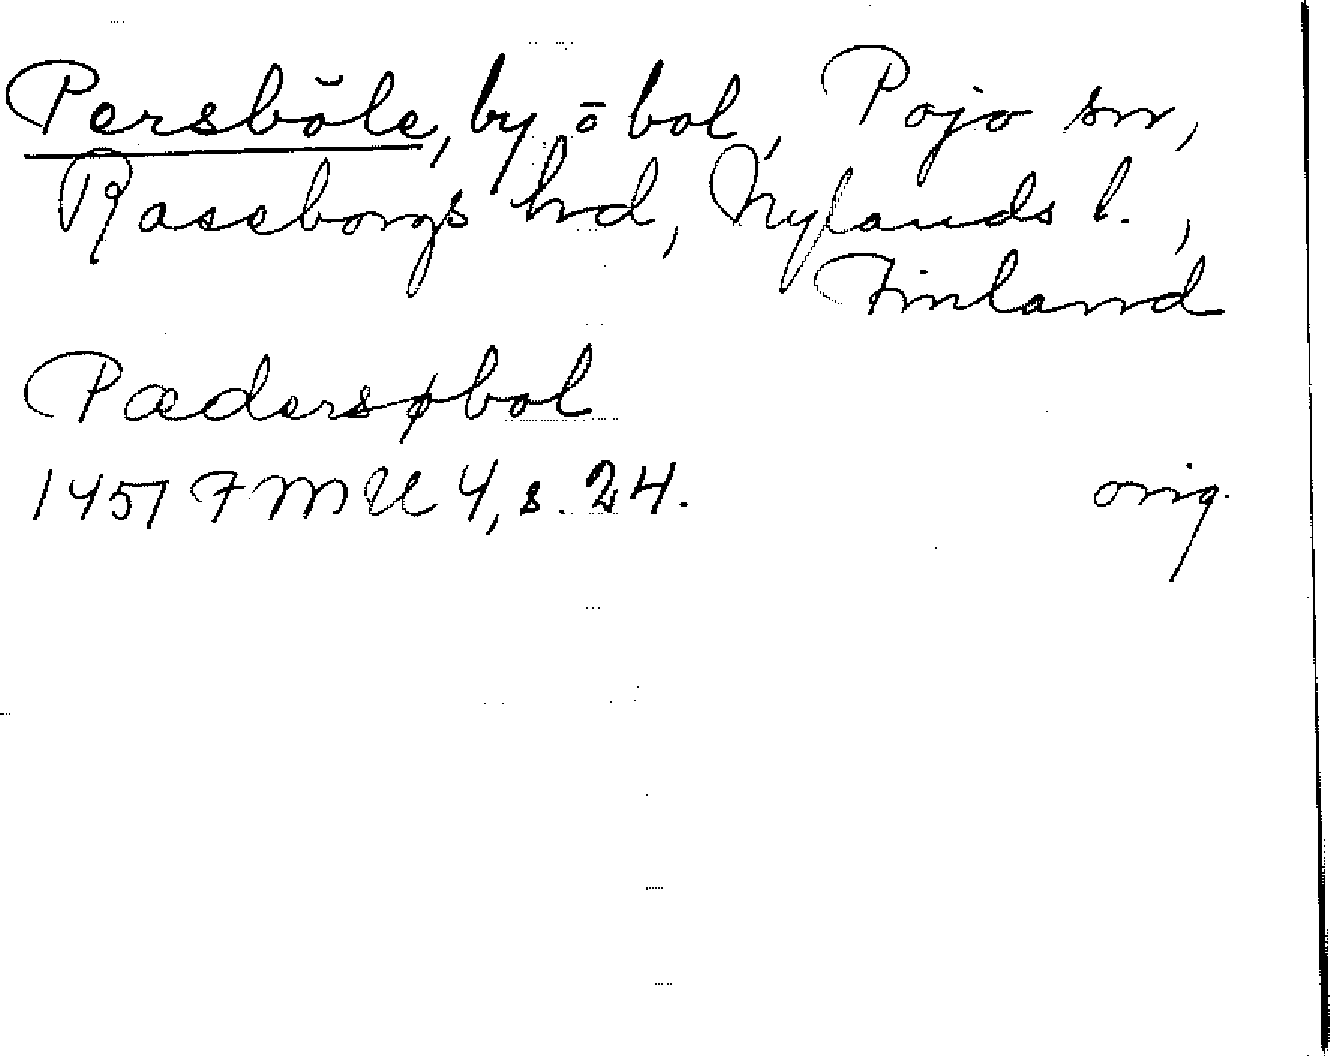 Persböle, by ō bol, Pojo sn,
Raseborgs hrd, Nylands l.,
Finland
Pædersøbol
1451 FMU 4, s. 24. orig.